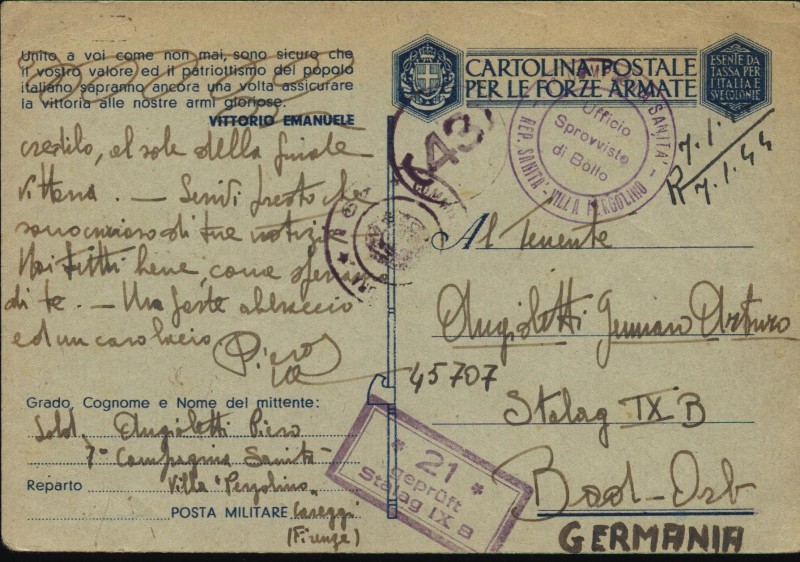 Unito a voi come non mai, sono sicuro che
il vostro valore ed il patriottismo del popolo
italiano sapranno ancora una volta assicurare
la vittoria alle nostre armi gloriose.
VITTORIO EMANUELE
credilo, al sole della finale
vittoria. — Scrivi presto che
sono curioso di tue notizie
Noi tutti bene, come speriamo
di te. — Un forte abbraccio
ed un caro bacio
Piero
Grado, Cognome e Nome del mittente:
Sold. Angioletti Piero
7ª Compagnia Sanità
Reparto Villa "Pergolino"
POSTA MILITARE Careggi
(Firenze)
CARTOLINA POSTALE
PER LE FORZE ARMATE
ESENTE DA
TASSA PER
L'ITALIA E
SVEGLIONE
43
SANITÀ
REP. SANITÀ - VILLA PERGOLINO
Ufficio
Sprovvisto
di Bollo
7.1.
R 7.1.44
Al Tenente
Angioletti Gennaro Arturo
45707
Stalag IX B
Bad-Orb
GERMANIA
* 21 *
geprüft
Stalag IX B